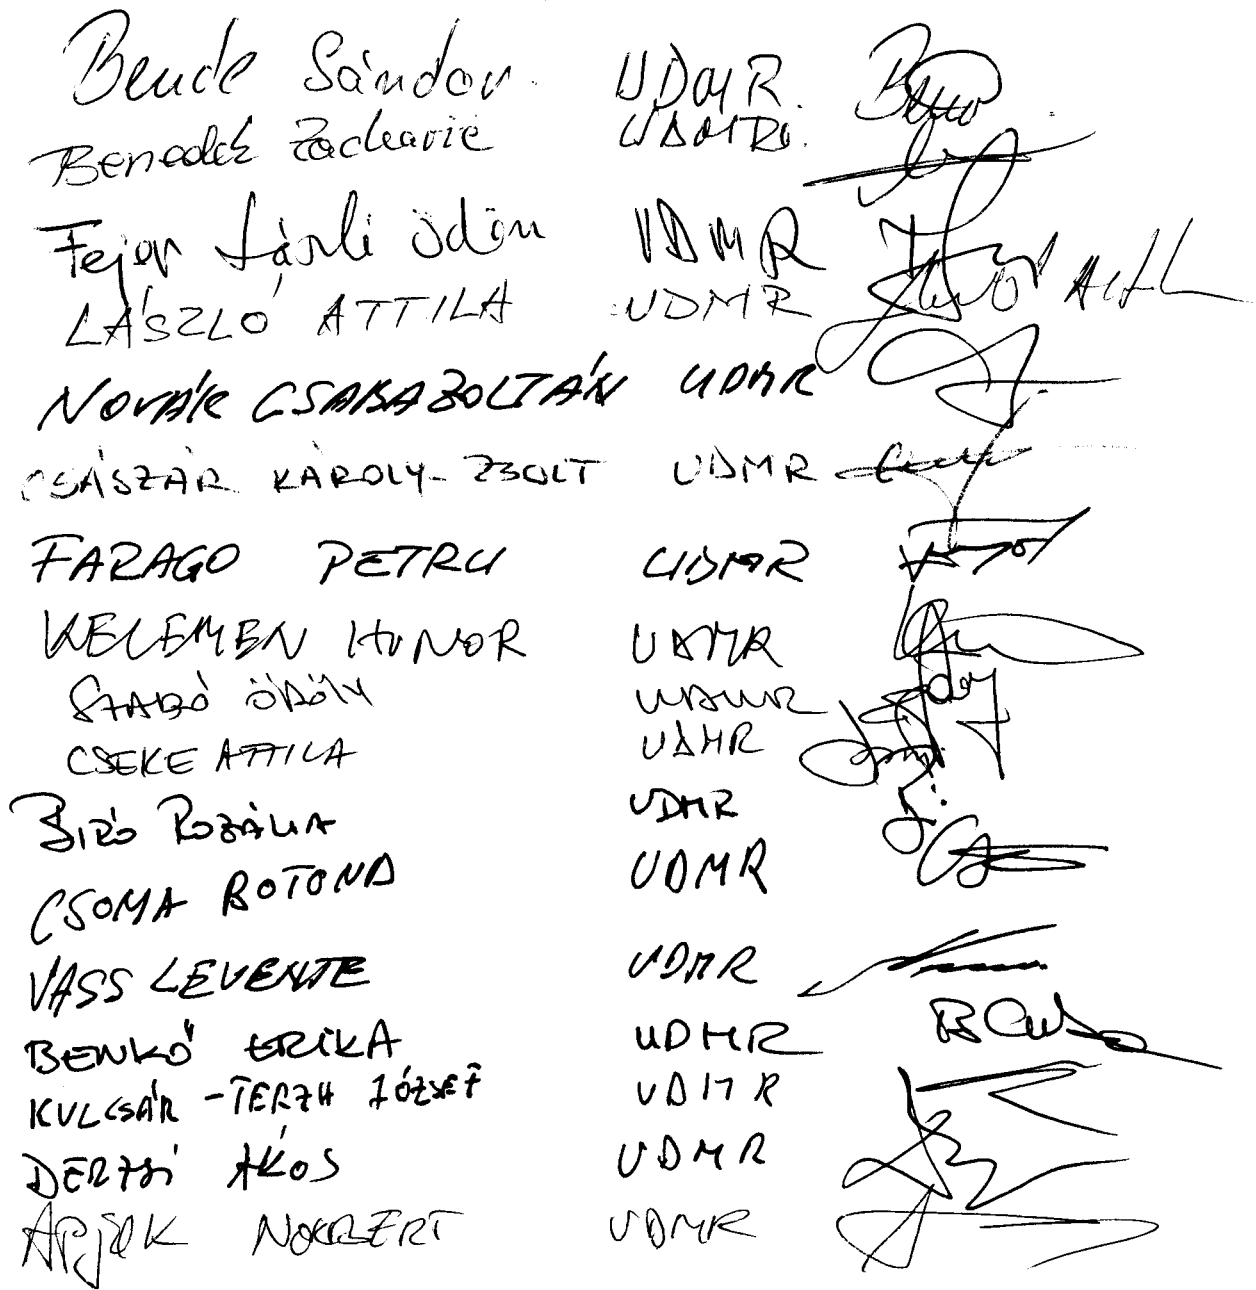 Bende Sándor. UDMR.
Benedek Zacharie UDMR.
Fejér László Ödön UDMR
LÁSZLÓ ATTILA UDMR
NOVÁK CSABA ZOLTÁN UDMR
CSÁSZÁR KÁROLY-ZSOLT UDMR
FARAGO PETRU UDMR
KELEMEN HUNOR UDMR
SZABÓ ÖDÖN UDMR
CSEKE ATTILA UDMR
BIRÓ ROZÁLIA UDMR
CSOMA BOTOND UDMR
VASS LEVENTE UDMR
BENKŐ ERIKA UDMR
KULCSÁR-TERZA JÓZSEF UDMR
DERZSI ÁKOS UDMR
Apjok NORBERT UDMR